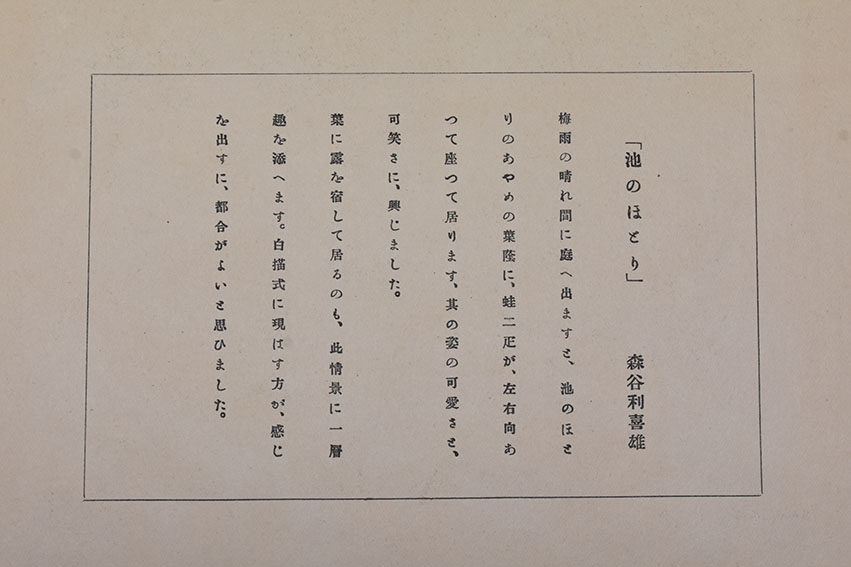 「池のほとり」　森谷利喜雄
梅雨の晴れ間に庭へ出ますと、池のほと
りのあやめの葉蔭に、蛙二疋が、左右向あ
つて座つて居ります、其の姿の可愛さと、
可笑さに、興じました。
葉に露を宿して居るのも、此情景に一層
趣を添へます。白描式に現はす方が、感じ
を出すに、都合がよいと思ひました。